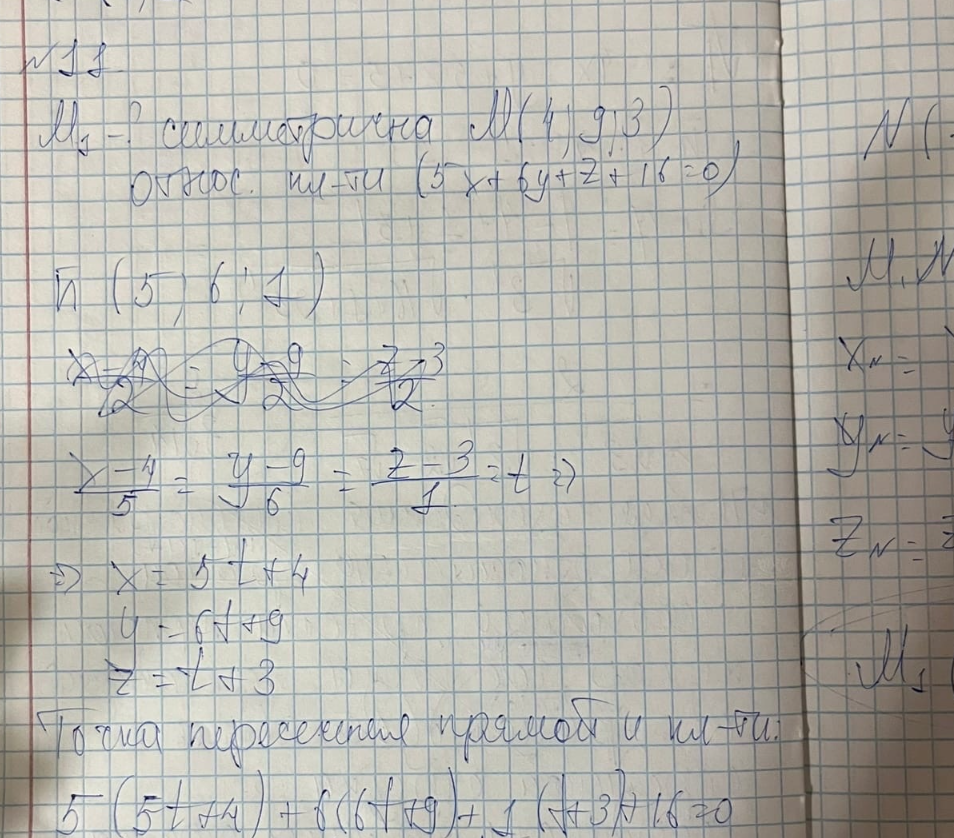 №11.
M₁ -? симметрична M(4; 9; 3)
относ. пл-ти (5x+6y+z+16=0)
n̄ (5; 6; 1)
x-4/2 = y-9/2 = z-3/2
x-4/5 = y-9/6 = z-3/1 = t ⇒
⇒ x = 5t+4
y = 6t+9
z = t+3
Точка пересечения прямой и пл-ти:
5(5t+4)+6(6t+9)+1(t+3)+16=0
N(
M₁N
x_N =
y_N = y
z_N = z
M₁ (